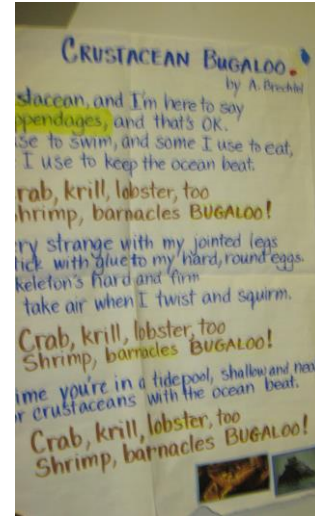 CRUSTACEAN BUGALOO.
by A. Brechtel
stacean, and I'm here to say
ppendages, and that's OK.
se to swim, and some I use to eat,
I use to keep the ocean beat.
rab, krill, lobster, too
hrimp, barnacles BUGALOO!
ry strange with my jointed legs
tick with glue to my hard, round eggs.
keleton's hard and firm
take air when I twist and squirm.
Crab, krill, lobster, too
Shrimp, barnacles BUGALOO!
ime you're in a tidepool, shallow and nea
r crustaceans with the ocean beat.
Crab, krill, lobster, too
Shrimp, barnacles BUGALOO!